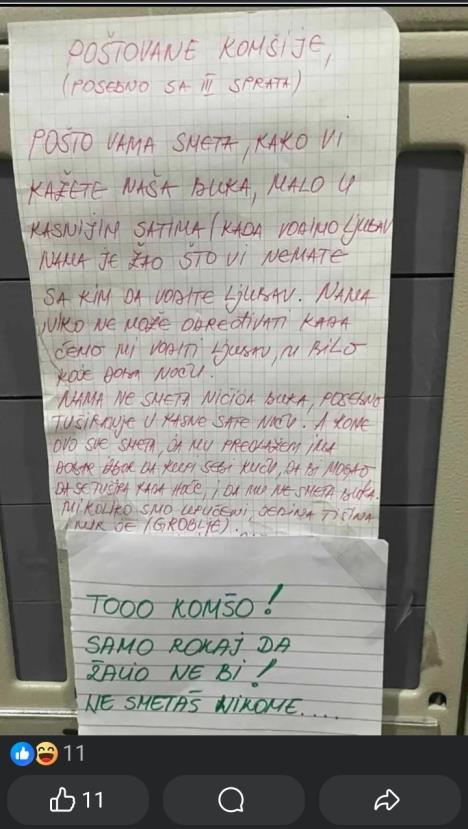 POŠTOVANE KOMŠIJE,
(POSEBNO SA III SPRATA)
POŠTO VAMA SMETA, KAKO VI
KAŽETE NAŠA BUKA, MALO U
KASNIJIM SATIMA (KADA VODIMO LJUBAV
NAMA JE ŽAO ŠTO VI NEMATE
SA KIM DA VODITE LJUBAV. NAMA
NIKO NE MOŽE ODREĐIVATI KADA
ĆEMO MI VODITI LJUBAV, U BILO
KOJE DOBA NOĆU.
NAMA NE SMETA NIČIJA BUKA, POSEBNO
TUŠIRANJE U KASNE SATE NOĆU. A KOME
OVO SVE SMETA, JA MU PREDLAŽEM IMA
DOBAR IZBOR DA KUPI SEBI KUĆU, DA BI MOGAO
DA SE TUŠIRA KADA HOĆE, I DA MU NE SMETA BUKA.
MI KOLIKO SMO UPUĆENI, JEDINA TIŠINA
I MIR JE (GROBLJE).
TOOO KOMŠO!
SAMO ROKAJ DA
ŽALIO NE BI!
NE SMETAŠ NIKOME....
11
11